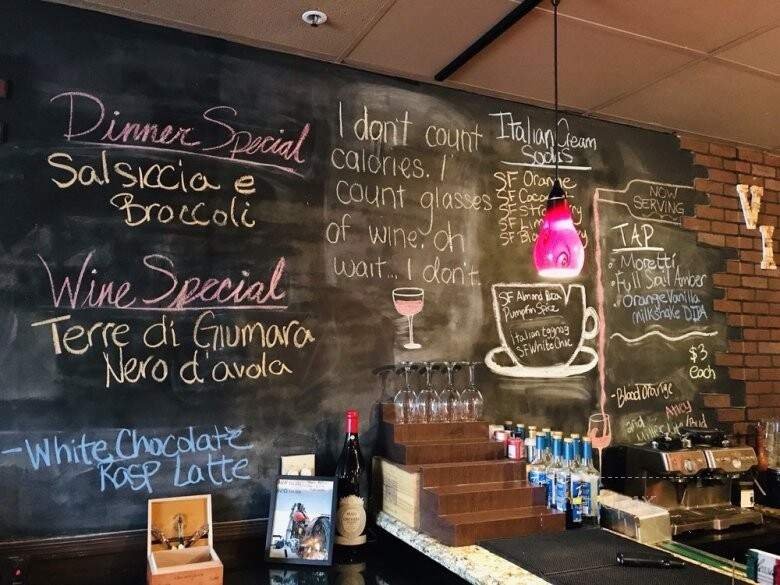 Dinner Special
Salsiccia e
Broccoli
Wine Special
Terre di Giumara
Nero d'avola
-White Chocolate
Rasp Latte
I don't count
calories. I
count glasses
of wine. oh
wait... I don't.
Italian Cream
Sodas
SF Orange
SF Coco
SF Str
SF Lim
SF Blo
SF Almond
Pumpkin Spice
Italian Eggnog
SF White Choc
NOW
SERVING
TAP
• Moretti
• Full Sail Amber
• Orange Vanilla
Milkshake DIPA
$3
each
-Blood Orange
and
VI